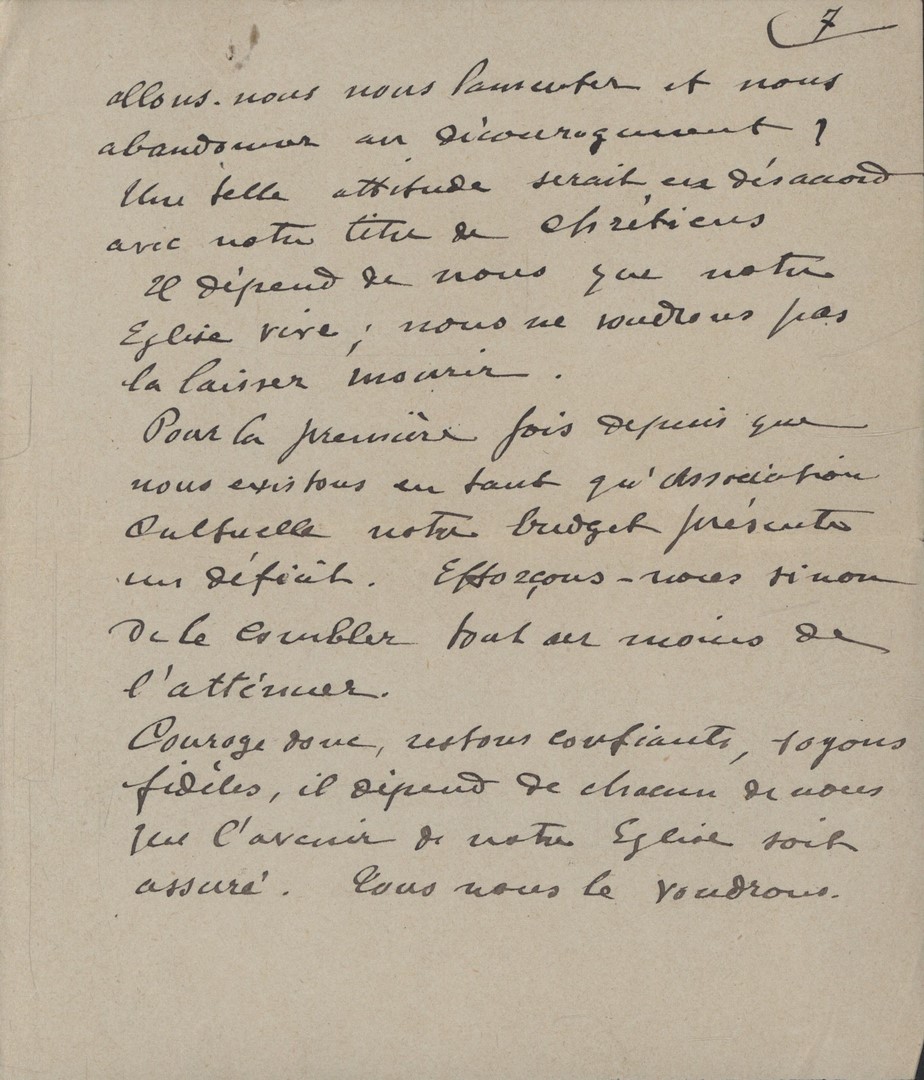 7
allons-nous nous lamenter et nous
abandonner au découragement ?
Une telle attitude serait en désaccord
avec notre titre de Chrétiens
Il dépend de nous que notre
Eglise vive ; nous ne voudrons pas
la laisser mourir .
Pour la première fois depuis que
nous existons en tant qu'Association
Cultuelle notre budget présente
un déficit. Efforçons-nous sinon
de le combler tout au moins de
l'atténuer.
Courage donc, restons confiants, soyons
fidèles, il dépend de chacun de nous
que l'avenir de notre Eglise soit
assuré. Tous nous le voudrons.